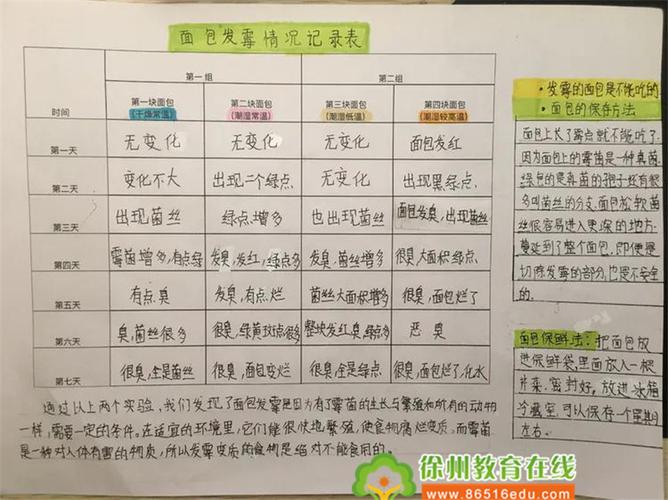 面包发霉情况记录表
时间 第一组 第二组
第一块面包 (干燥常温) 第二块面包 (潮湿常温) 第三块面包 (潮湿低温) 第四块面包 (潮湿较高温)
第一天 无变化 无变化 无变化 面包发红
第二天 变化不大 出现二个绿点 无变化 出现黑绿点
第三天 出现菌丝 绿点增多 也出现菌丝 面包发臭,出现菌丝
第四天 霉菌增多,有点绿 发臭,发红,绿点多 发臭,菌丝增多 很臭,大面积绿点
第五天 有点臭 发臭,有点烂 菌丝大面积增多 很臭,面包烂了
第六天 臭,菌丝很多 很臭,绿黄斑点很多 整块发红臭,绿点多 恶臭
第七天 很臭,全是菌丝 很臭,面包变烂 很臭,全是绿点 很臭,面包烂了,化水
通过以上两个实验,我们发现了面包发霉是因为有了霉菌的生长与繁殖和所有的动物
一样,需要一定的条件。在适宜的环境里,它们能很快地繁殖,使食物腐烂变质。而霉菌
是一种对人体有害的物质,所以发霉变质的食物是绝对不能食用的。
·发霉的面包是不能吃的
·面包的保存方法
面包上长了霉点就不能吃了
因为面包上的霉菌是一种真菌
绿色的是真菌的孢子还有很
多叫菌丝的分支,面包松软菌
丝很容易进入更深的地方
蔓延到了整个面包,即便是
切除发霉的部分,也是不安全
的。
面包保鲜法:把面包放
进保鲜袋,里面放入一根
芹菜,密封好,放进冰箱
冷藏室,可以保存一个星期
左右。
徐州教育在线
www.86516edu.com